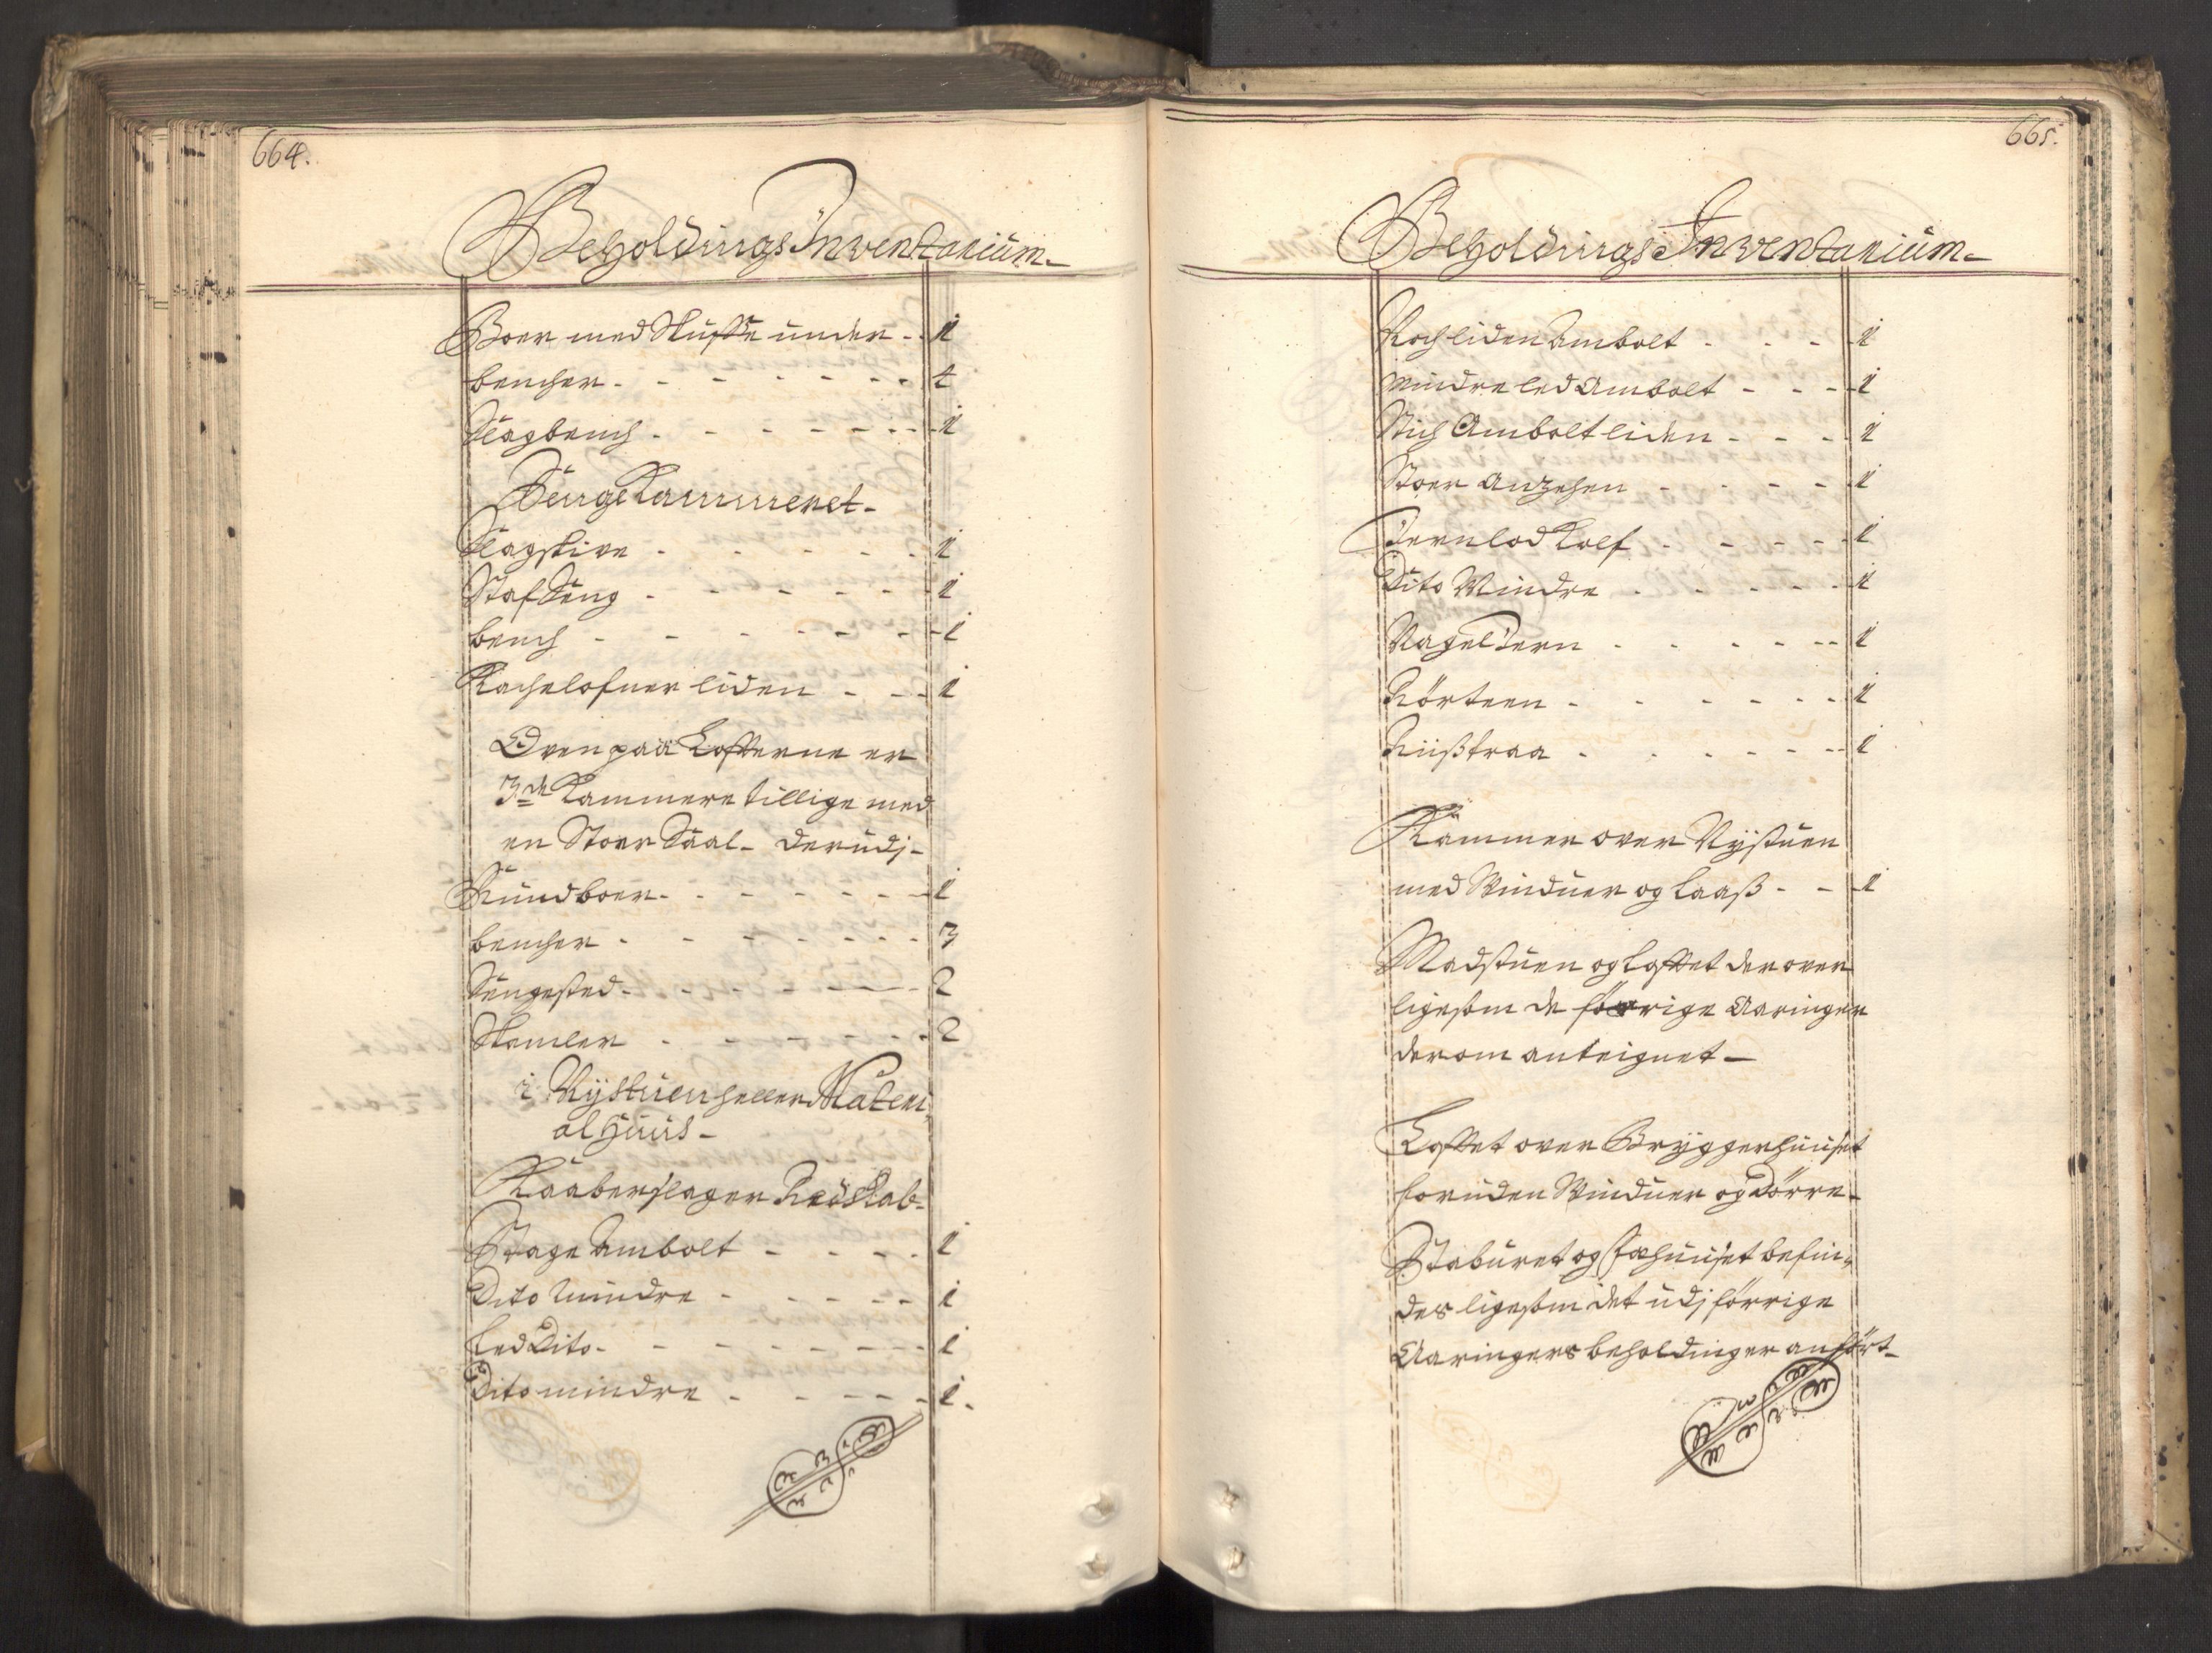 664.
Beholdings Inventarium
Boer med Skuffe under - - 1
bencher - - - - - - - - 4
Slagbench - - - - - - - 1
Senge Kammeret -
Slagskive - - - - - - 1
Staf Seng - - - - - - 1
bench - - - - - - - 1
Kachelofner liden - - - 1
Oven paa Lofterne er
3de Kammere tillige med
en Stoer Saal - derudj -
Rund boer - - - - - - - 1
bencher - - - - - - - - 3
Sengested - - - - - - - 2
Skamler - - - - - - - 2
i Nystuen heller Materi
al Huus -
Kaaberslager Redskab -
Stage Ambolt - - - - 1
Dito mindre - - - - - 1
Led Dito - - - - - - - 1
Dito mindre - - - - - 1.
665.
Beholdings Inventarium
Noch liden Ambolt - - - 1
Mindre led Ambolt - - - 1
Stich Ambolt liden - - - 1
Stoer - - - - - 1
Jernlod Kolf - - - - - 1
Dito Mindre - - - - - 1
Nagel Jern - - - - - - 1
- - - - - - 1
- - - - - - 1
Kammer over Nystuen
med Winduer og Laaß - - 1
Madstuen og Loftet der over
ligesom de forrige Aaringer
derom anteignet -
Loftet over Bryggerhuuset
foruden Winduer og Dörre -
Staburet og Fæhuuset befin,
des ligesom det udj förrige
Aaringers beholdinger anfört -